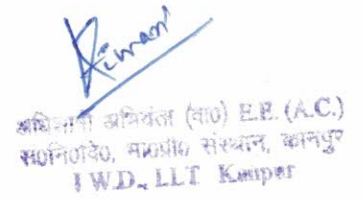 अधिशासी अभियंता (वा०) E.E. (A.C.)
स०नि०वि०, भा०प्रौ० संस्थान, कानपुर
I W.D., I.I.T Kanpur